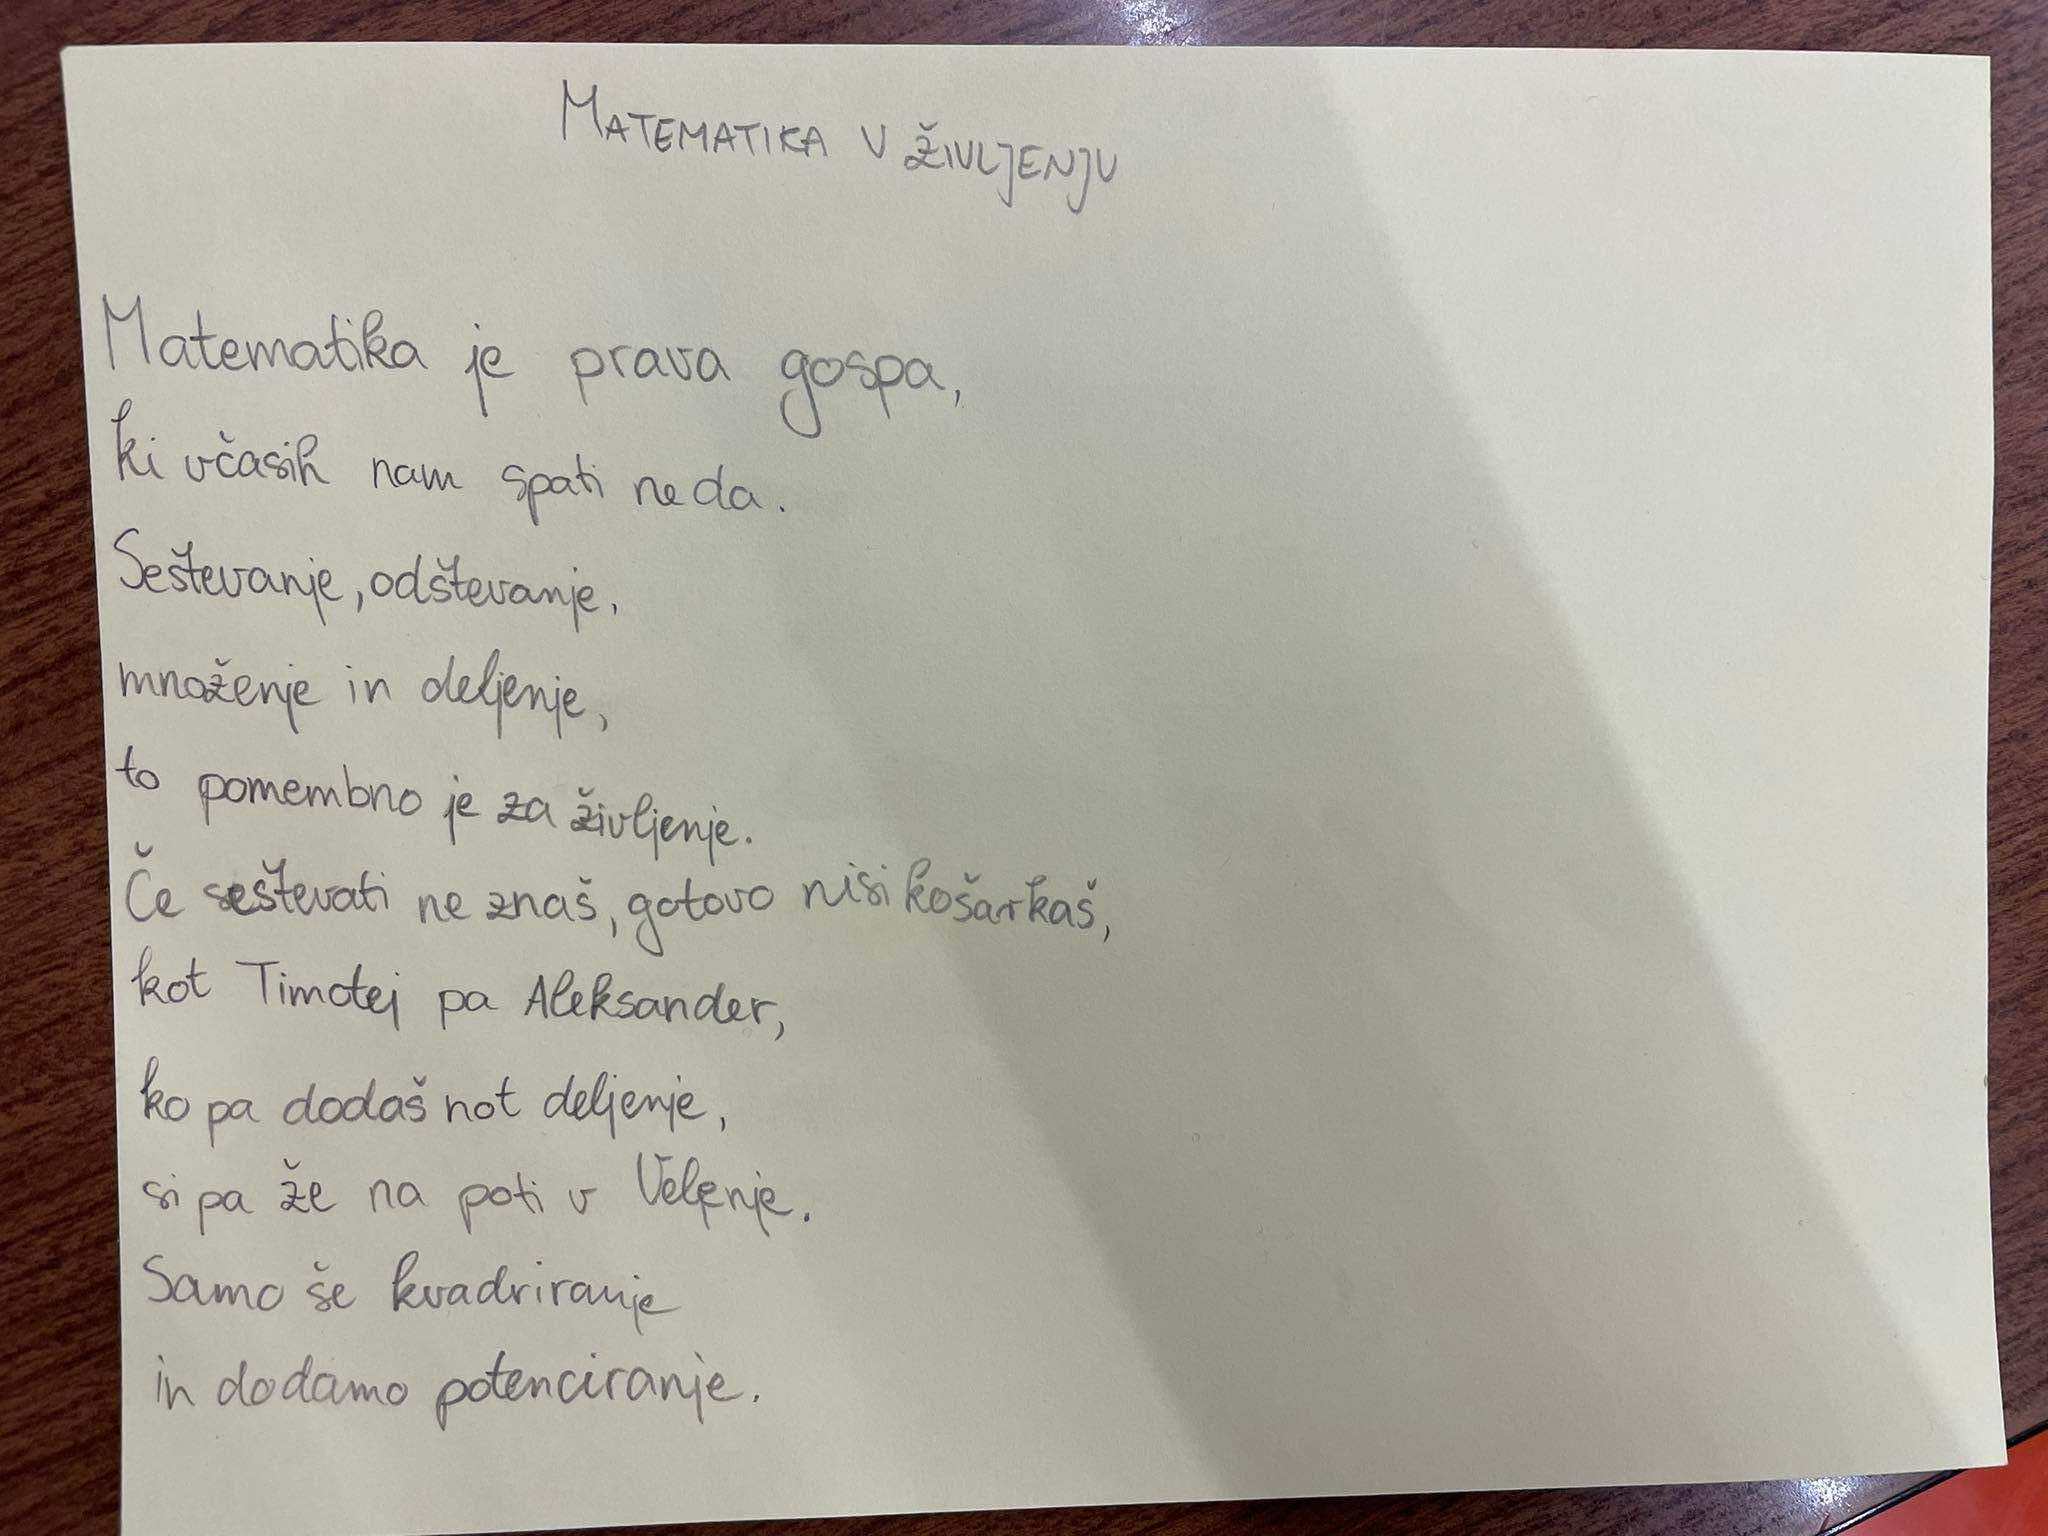 MATEMATIKA V ŽIVLJENJU
Matematika je prava gospa,
ki včasih nam spati ne da.
Seštevanje, odštevanje,
množenje in deljenje,
to pomembno je za življenje.
Če seštevati ne znaš, gotovo nisi košarkaš,
kot Timotej pa Aleksander,
ko pa dodaš not deljenje,
si pa že na poti v Velenje.
Samo še kvadriranje
in dodamo potenciranje.